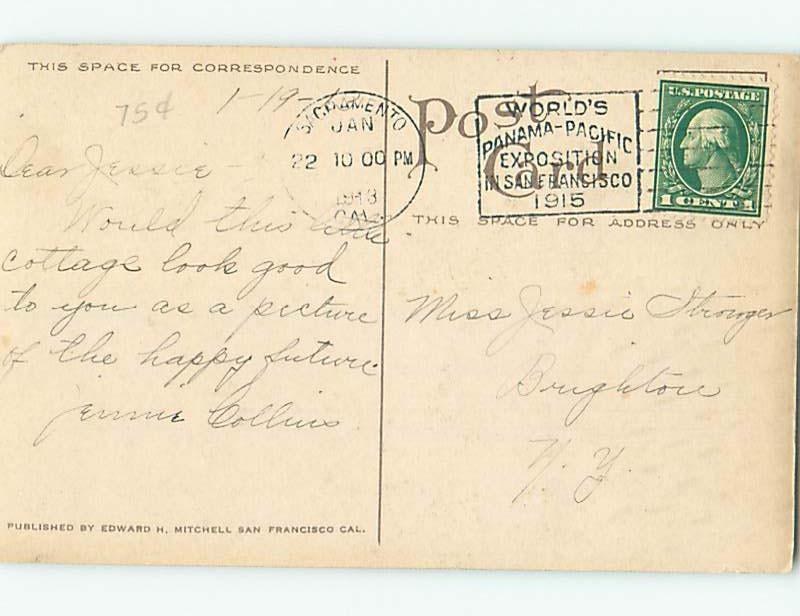 THIS SPACE FOR CORRESPONDENCE
75¢
1-19-
Dear Jessie -
Would this little
cottage look good
to you as a picture
of the happy future.
Jennie Collins
PUBLISHED BY EDWARD H. MITCHELL SAN FRANCISCO CAL.
SACRAMENTO
JAN
22 10 00 PM
1913
CAL.
Post
Card
WORLD'S
PANAMA-PACIFIC
EXPOSITION
IN SAN FRANCISCO
1915
U.S. POSTAGE
1 CENT 1
THIS SPACE FOR ADDRESS ONLY
Miss Jessie
Brighton
N. Y.